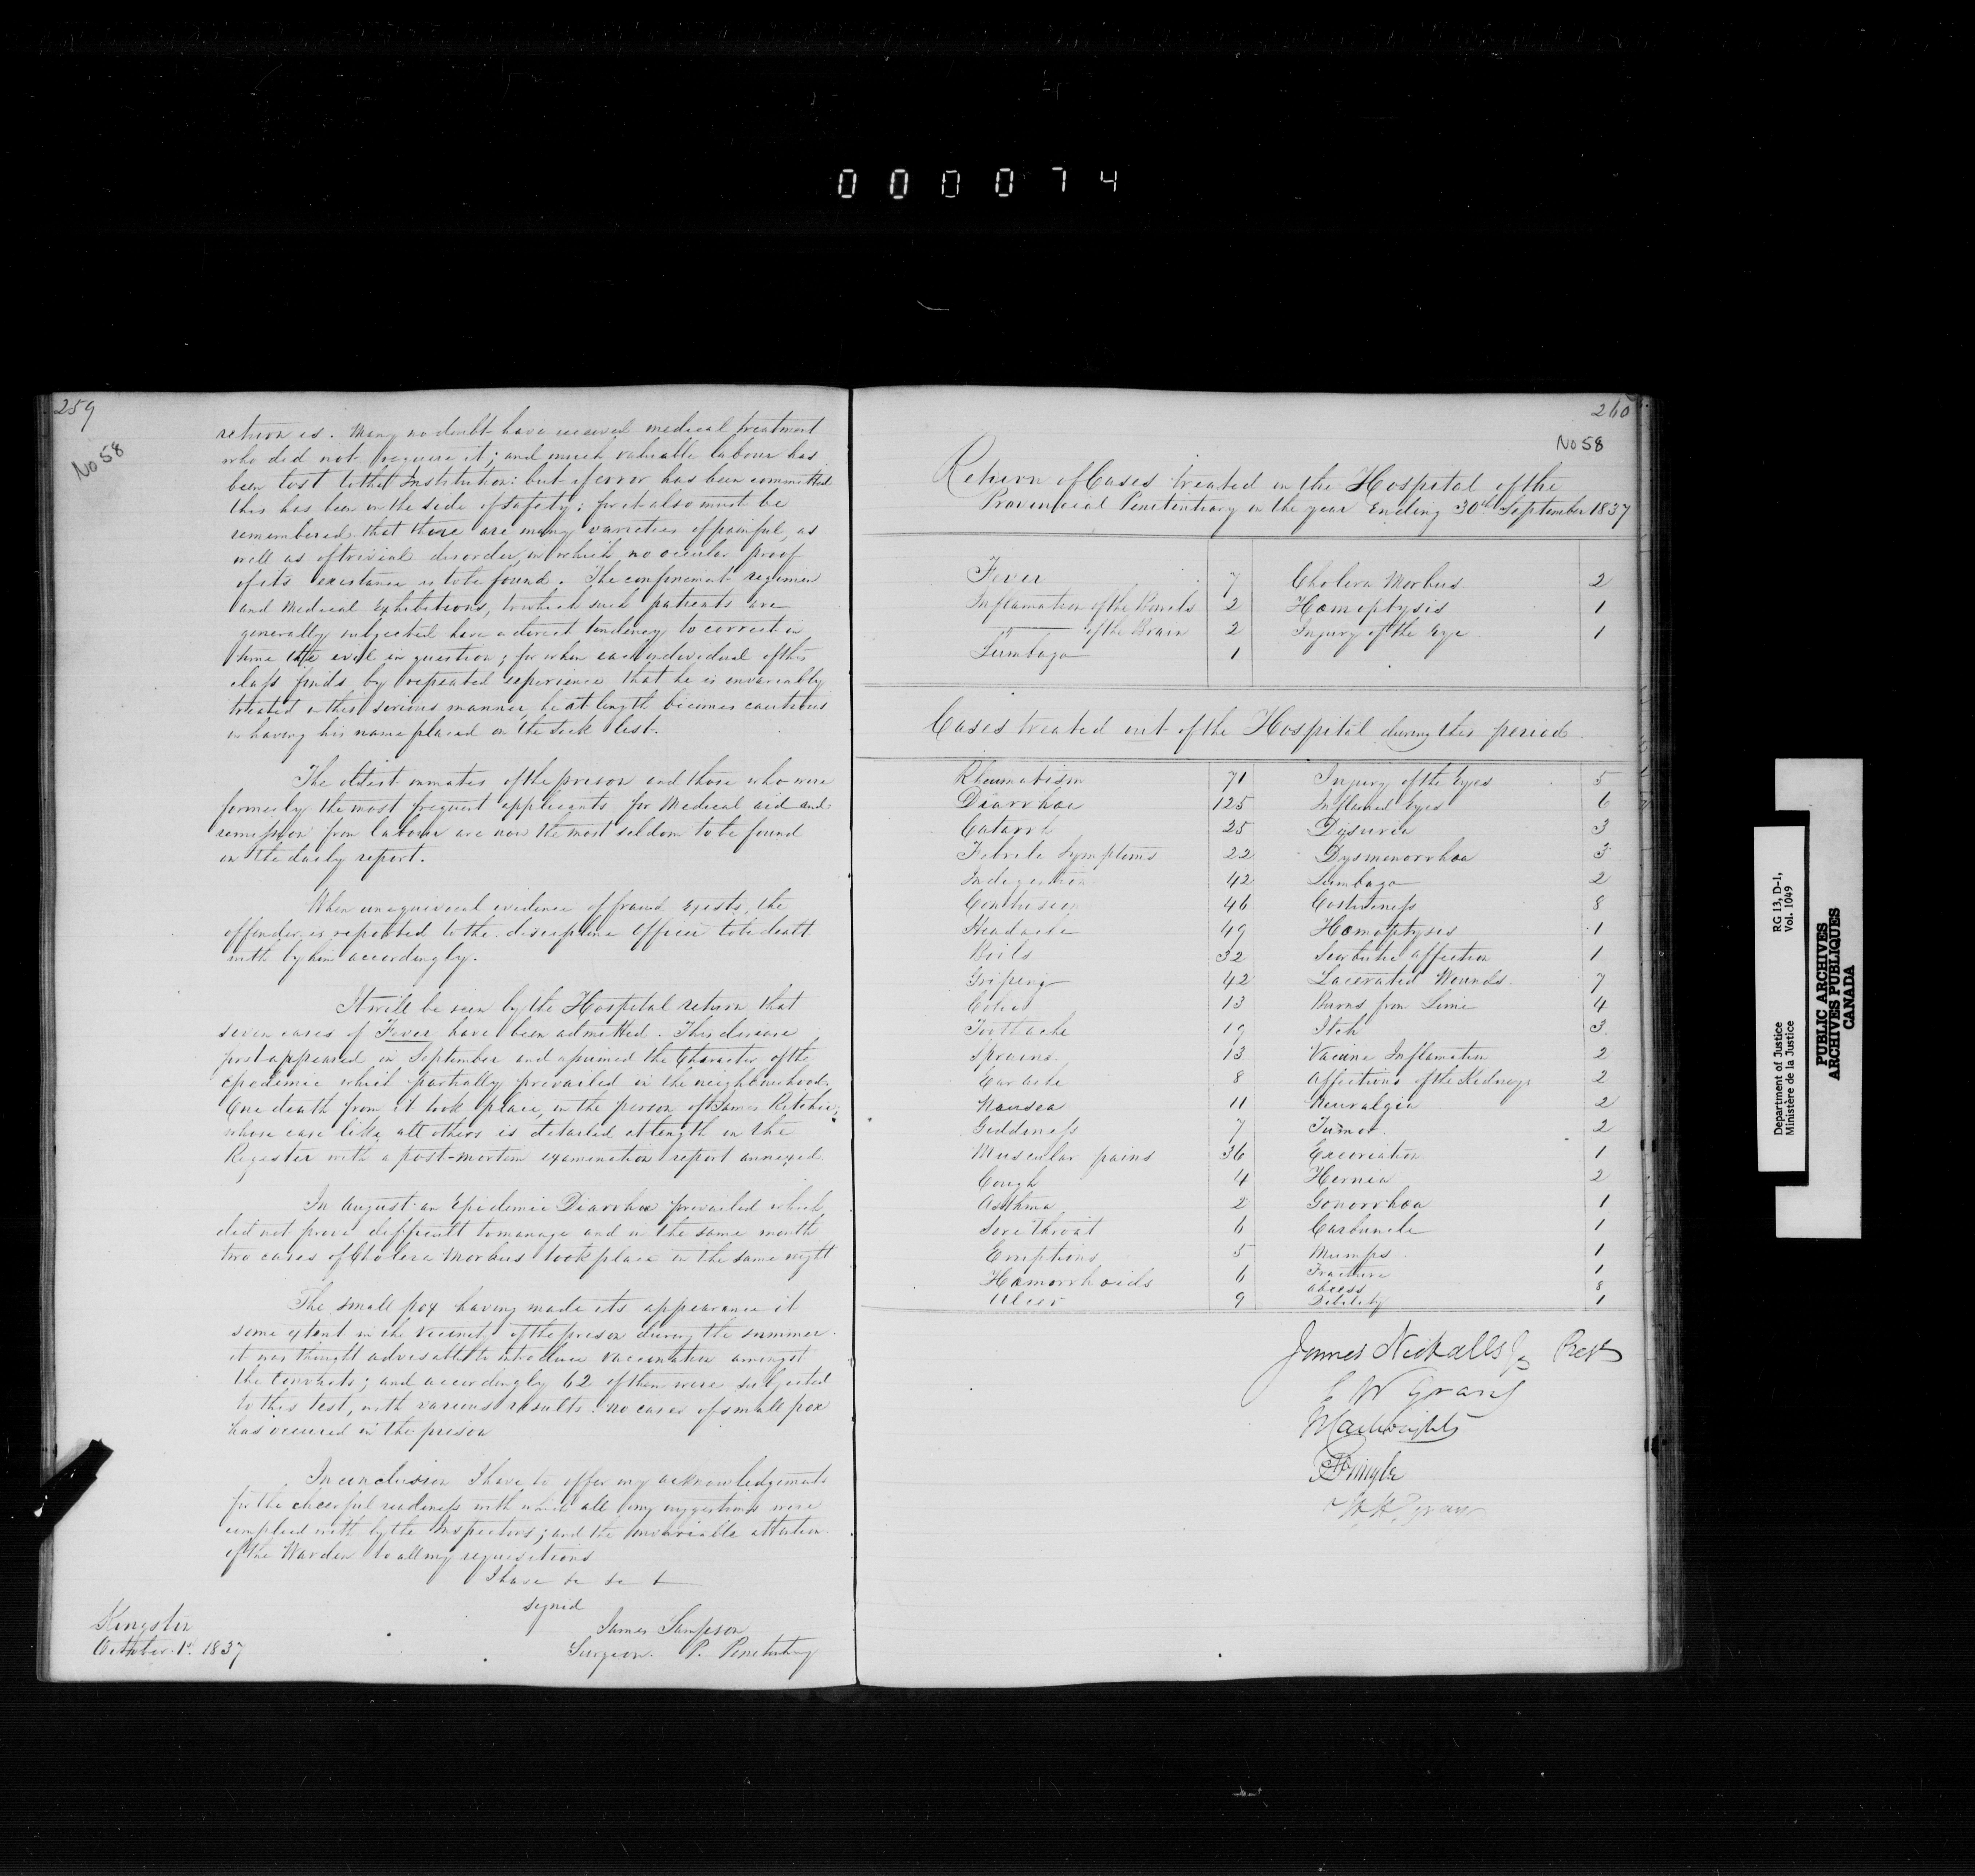 000074
259
No 58
return is. Many no doubt have received medical treatment
who did not require it; and much valuable labour has
been lost to the Institution: but if error has been committed
this has been on the side of safety; for it also must be
remembered that there are many varieties of painful, as
well as of trivial disorder, in which no occular proof
of its existance is to be found. The confinement regimen
and Medical Exhibitions, to which such patients are
generally subjected have a direct tendency to correct in
time the evil in question; for when each individual of this
class finds by repeated experience that he is invariably
treated in this serious manner, he at length becomes cautious
in having his name placed on the sick list.
The oldest inmates of the prison and those who were
formerly the most frequent applicants for Medical aid and
remission from labour are now the most seldom to be found
on the daily report.
When unequivocal evidence of fraud exists, the
offender is reported to the discipline Officer to be dealt
with by him accordingly.
It will be seen by the Hospital return that
seven cases of Fever have been admitted. This disease
first appeared in September and assumed the Character of the
epedimic which partially prevailed in the neighbourhood.
One death from it took place, in the person of James Ritchie;
whose case like all others is detailed at length in the
Register with a post-mortem examination report annexed.
In August an Epedimic Diarrhoa prevailed which
did not prove difficult to manage and in the same month
two cases of Cholera Morbus took place in the same night
The small pox having made its appearance it
some extent in the vicinity of the prison during the summer
it was thought adviseable to introduce vaccination amongst
the convicts; and accordingly 62 of them were subjected
to this test, with various results. No case of small pox
has occured in the prison
In conclusion I have to offer my acknowledgements
for the cheerful readiness with which all my suggestions were
complied with by the Inspectors; and the invariable attention
of the Warden to all my requisitions
I have &c &c &c
signed
James Sampson
Surgeon P. Penetentiary
Kingston
October 1st 1837
260
No 58
Return of Cases treated in the Hospital of the
Provincial Penitentiary in the year Ending 30th September 1837
Fever 7 Cholera Morbus 2
Inflamation of the Bowels 2 Hæmoptysis 1
—— of the Brain 2 Injury of the Eye 1
Lumbago 1
Cases treated out of the Hospital during this period
Rheumatism 71 Injury of the Eyes 5
Diarrhoe 125 Inflamed Eyes 6
Catarrh 25 Dysuria 3
Febrile Symptoms 22 Dysmenorrhoa 3
Indigestion 42 Lumbago 2
Contusion 46 Costiveness 8
Headache 49 Hæmoptyses 1
Boils 32 Scorbutic affection 1
Griping 42 Lacerated Wounds 7
Colics 13 Burns from Lime 4
Toothache 19 Itch 3
Sprains 13 Vaccine Inflamation 2
Ear ache 8 Affections of the Kidneys 2
Nausea 11 Neuralgia 2
Giddiness 7 Tumor 2
Muscular pains 36 Excoriation 1
Cough 4 Hernia 2
Asthma 2 Gonorrhoa 1
Sore throat 6 Carbuncle 1
Eruptions 5 Mumps 1
Hæmorrhoids 6 Fracture 1
Ulcer 9 Abcess 8
Debility 1
James Nickalls Jr Prest
W Grant
Pringle
Department of Justice RG 13, D-1,
Ministère de la Justice Vol. 1049
PUBLIC ARCHIVES
ARCHIVES PUBLIQUES
CANADA